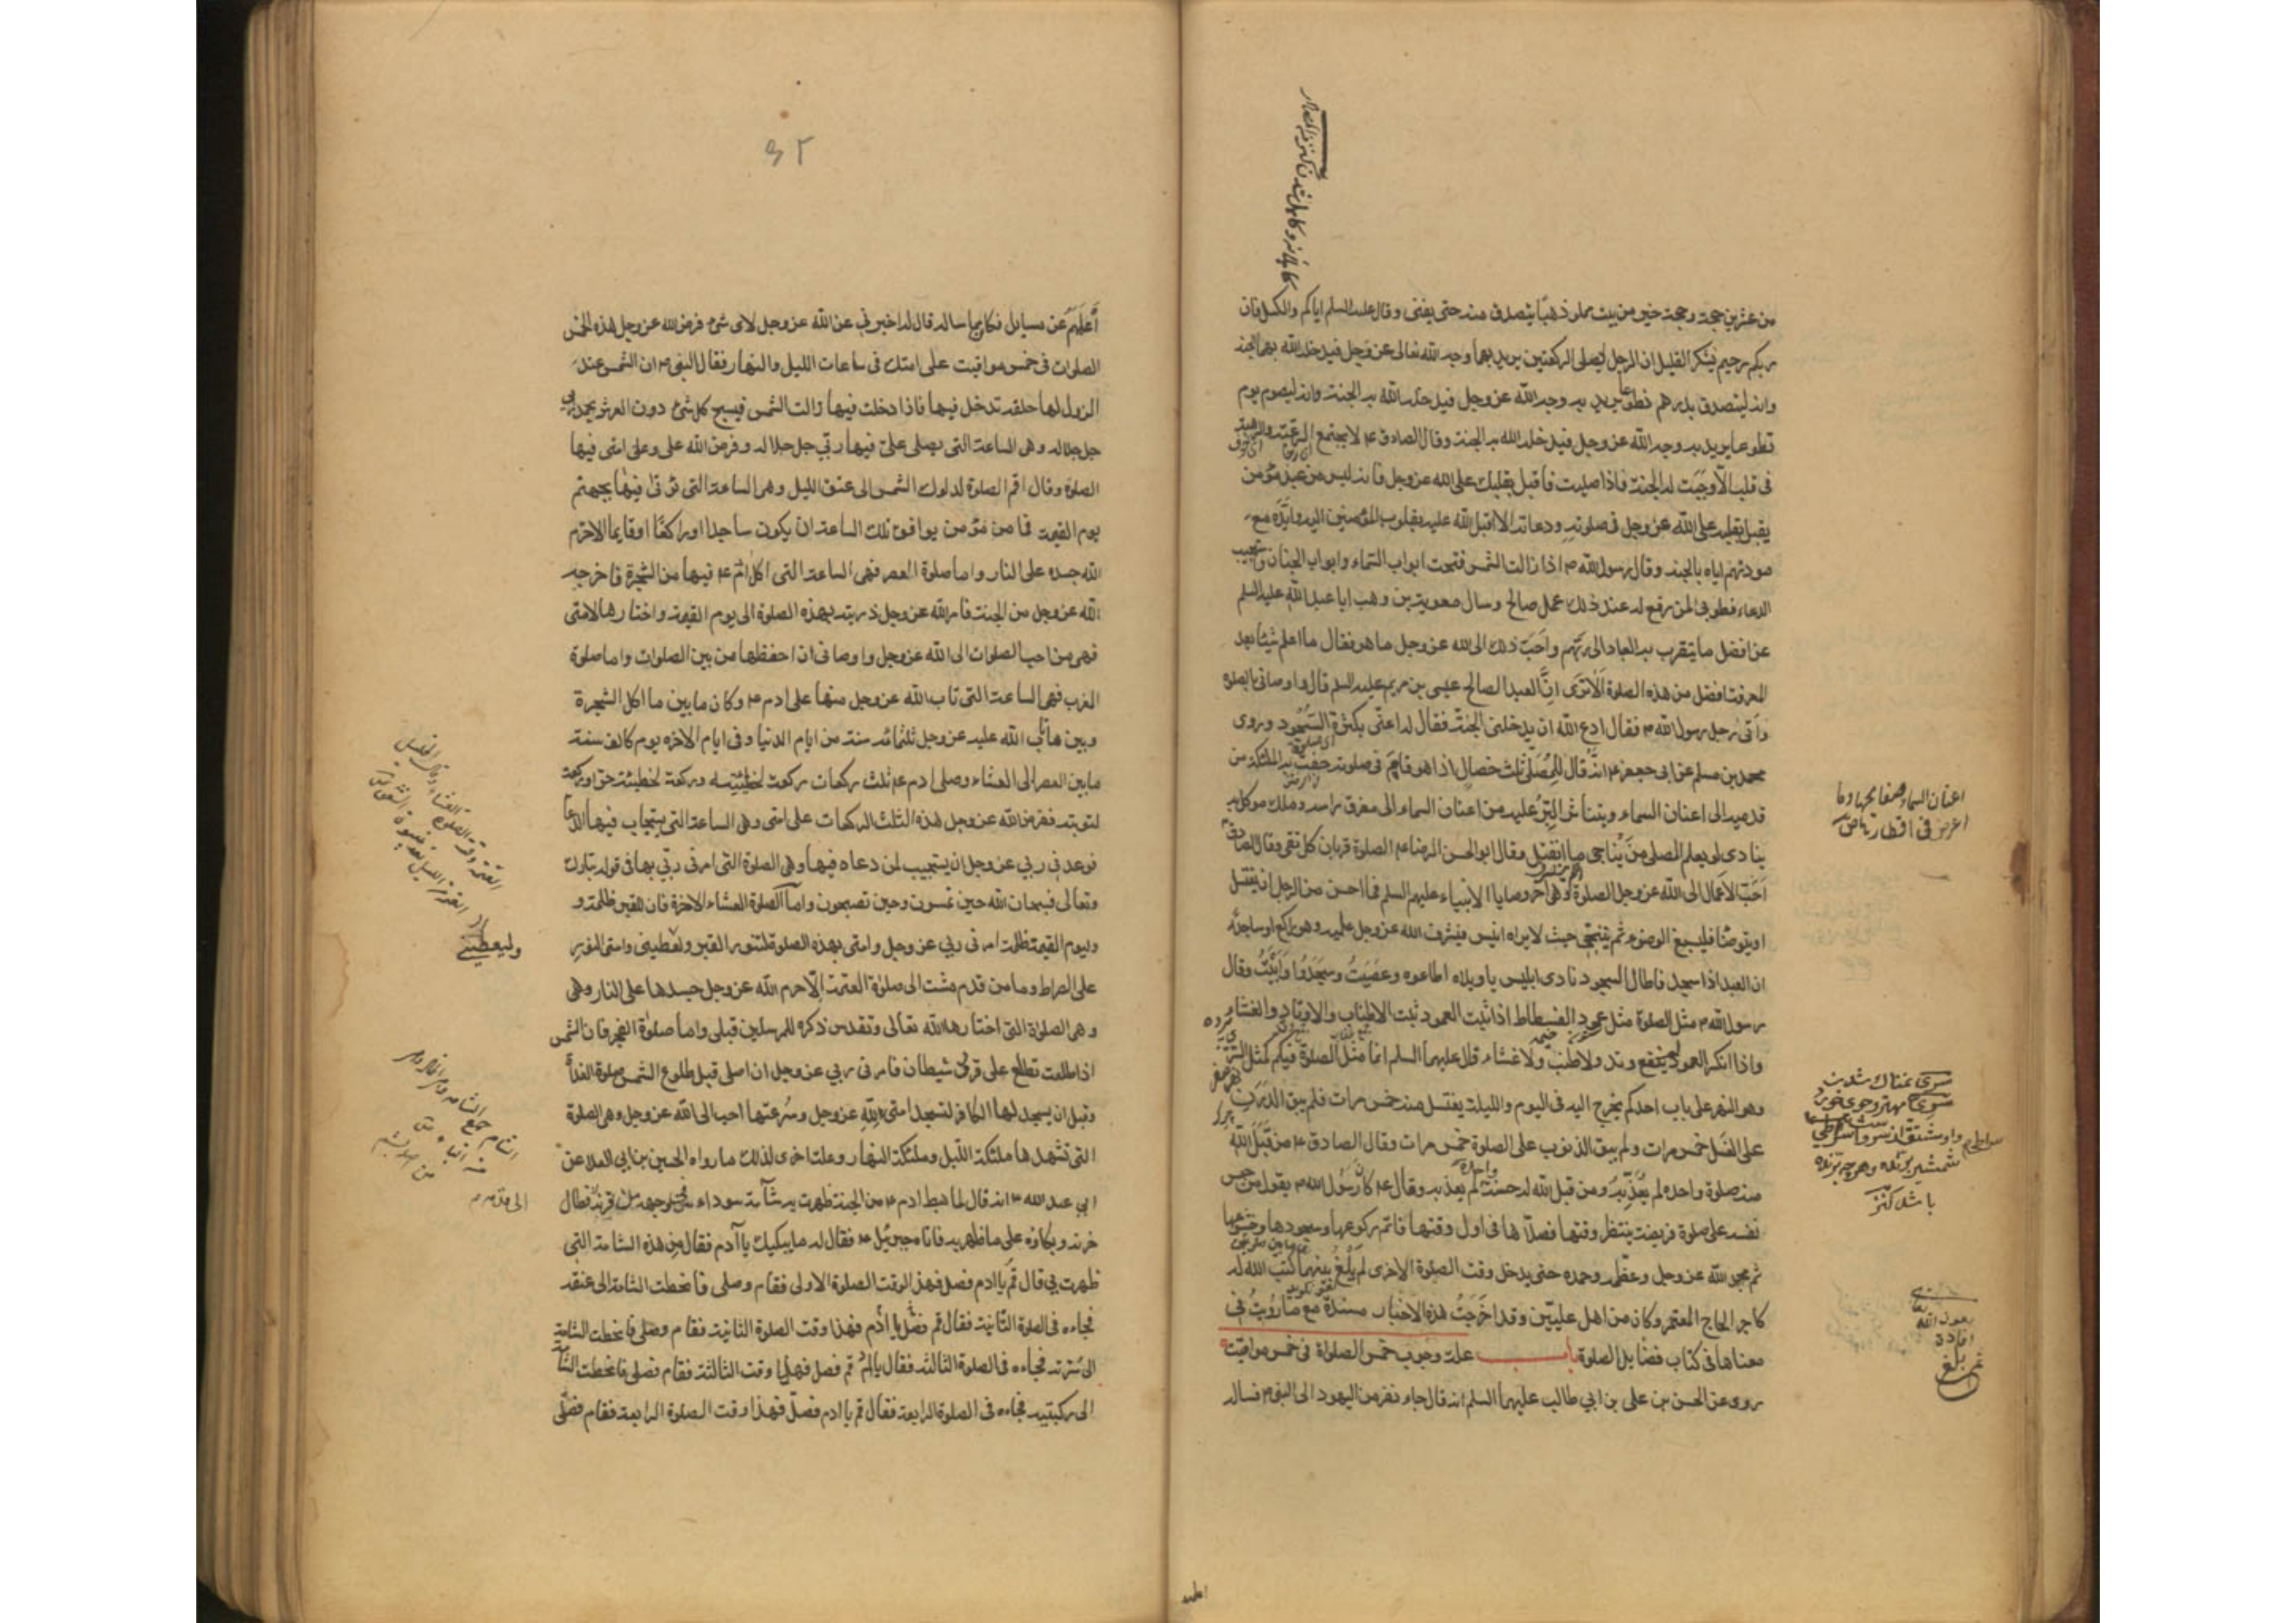 من عشرين حجة وحجة خير من بيت مملو ذهبا يتصدق منه حتى يفنى وقال عليه السلم اياكم والكسل فان
ربكم رحيم يشكر القليل ان الرجل ليصلى الركعتين يريد بهما وجه الله تعالى عز وجل فيدخله الله بهما الجنة
وانه ليتصدق بدرهم تطوعا يريد به وجه الله عز وجل فيدخله الله به الجنة وانه ليصوم يوم
تطوعا يريد به وجه الله عز وجل فيدخله الله به الجنة وقال الصادق ع لا يجتمع الرغبة والرهبة
فى قلب الا وجبت له الجنة فاذا صليت فاقبل بقلبك على الله عز وجل فانه ليس من عبد مؤمن
يقبل بقلبه على الله عز وجل فى صلوته ودعائه الا اقبل الله عليه بقلوب المؤمنين اليه وايّده مع
مودتهم اياه بالجنة وقال رسول الله ص اذا زالت الشمس فتحت ابواب السماء وابواب الجنان واستجيب
الدعاء فطوبى لمن رفع له عند ذلك عمل صالح وسال معوية بن وهب ابا عبد الله عليه السلم
عن افضل ما يتقرب به العباد الى ربّهم واحَبّ ذلك الى الله عز وجل ما هو فقال ما اعلم شيئا بعد
المعرفة افضل من هذه الصلوة الا ترى انّ العبد الصالح عيسى بن مريم عليه السلم قال واوصانى بالصلوة
واتى رجل رسول الله ص فقال ادع الله ان يدخلنى الجنة فقال له اعنّى بكثرة السّجود وروى
محمد بن مسلم عن ابى جعفر ع انه قال للمُصلّى ثلث خصال اذا هو قايم فى صلوته حفت به الملئكة من
قدميه الى اعنان السماء ويتناثر البِرّ عليه من اعنان السماء الى مفرق راسه وملك موكل به
ينادى لو يعلم المصلى مَن يُناجى ما انفتل وقال ابو الحسن الرضا ع الصلوة قربان كل تقى وقال الصادق ع
احَبّ الاعمال الى الله عز وجل الصلوة وهى اخر وصايا الانبياء عليهم السلم فما احسن من الرجل ان يغتسل
او يتوضّا فليسبغ الوضوء ثم يتنحّى حيث لا يراه انيس فيشرف الله عز وجل عليه وهو راكع او ساجد
ان العبد اذا سجد فاطال السجود نادى ابليس يا ويلاه اطاعوه وعصَيتُ وسجَدُوا وابَيْتُ وقال
رسول الله ص مثل الصلوة مثل عمود الفسطاط اذا ثبت العمود ثبت الاطناب والاوتاد والغشاء
واذا انكسر العمود لم ينفع وتد ولا طنب ولا غشاء وقال عليهما السلم انما مثل الصلوة فيكم كمثل السّرى
وهو النهر على باب احدكم يخرج اليه فى اليوم والليلة يغتسل منه خمس مرات فلم يبق الدرن
على الغسل خمس مرات ولم يبق الذنوب على الصلوة خمس مرات وقال الصادق ع من قبل الله
منه صلوة واحدة لم يعذّبه ومن قبل الله له حسنة لم يعذبه وقال ع كان رسول الله ص يقول من حبس
نفسه على صلوة فريضة ينتظر وقتها فصلاها فى اول وقتها فاتم ركوعها وسجودها وخشوعها
ثم مجد الله عز وجل وعظمه وحمده حتى يدخل وقت الصلوة الاخرى لم يلغ بينهما كتب الله له
كاجر الحاج المعتمر وكان من اهل عليّين وقد اخرجتُ هذه الاخبار مسندة مع ما رويتُ فى
معناها فى كتاب فضايل الصلوة باب علة وجوب خمس الصلواة فى خمس مواقيت
روى عن الحسن بن على بن ابى طالب عليهما السلم انه قال جاء نفر من اليهود الى النبى ص فساله
اعنان السماء صفايحها وما
اعرض فى اقطارها ص
ثم بلغ
۹۲
أعلمهم عن مسايل فكان مما ساله قال له اخبرنى عن الله عز وجل لاى شئ فرض الله عز وجل هذه الخمس
الصلوات فى خمس مواقيت على امتك فى ساعات الليل والنهار فقال النبى ص ان الشمس عند
الزوال لها حلقة تدخل فيها فاذا دخلت فيها زالت الشمس فيسبح كل شئ دون العرش بحمد ربى
جل جلاله وهى الساعة التى يصلى علىّ فيها ربّى جل جلاله وفرض الله على وعلى امتى فيها
الصلوة وقال اقم الصلوة لدلوك الشمس الى غسق الليل وهى الساعة التى تؤتى فيها بجهنم
يوم القيمة فما من مؤمن يوافق تلك الساعة ان يكون ساجدا او راكعًا او قايما الا حرّم
الله جسده على النار واما صلوة العصر فهى الساعة التى اكل ادم ع فيها من الشجرة فاخرجه
الله عز وجل من الجنة فامر الله عز وجل ذريته بهذه الصلوة الى يوم القيمة واختارها لامتى
فهى من احب الصلوات الى الله عز وجل واوصانى ان احفظها من بين الصلوات واما صلوة
المغرب فهى الساعة التى تاب الله عز وجل منها على ادم ع وكان ما بين ما اكل الشجرة
وبين ما تاب الله عليه عز وجل ثلثمائة سنة من ايام الدنيا وفى ايام الاخرة يوم كالف سنة
مابين العصر الى العشاء وصلى ادم ع ثلث ركعات ركعة لخطيئته وركعة لخطيئة حوا وركعة
لتوبته ففرض الله عز وجل هذه الثلث الركعات على امتى وهى الساعة التى يستجاب فيها الدعا
فوعدنى ربى عز وجل ان يستجيب لمن دعاه فيها وهى الصلوة التى امرنى ربّى بها فى قوله تبارك
وتعالى فسبحان الله حين تمسون وحين تصبحون واما الصلوة العشاء الاخرة فان للقبر ظلمة و
وليوم القيمة ظلمة امرنى ربى عز وجل وامتى بهذه الصلوة لتنور القبر وليعطينى وامتى النور
على الصراط وما من قدم مشت الى صلوة العتمة الا حرم الله عز وجل جسدها على النار وهى
وهى الصلواة التى اختارها الله تعالى وتقدس ذكره للمرسلين قبلى واما صلوة الفجر فان الشمس
اذا طلعت تطلع على قرنى شيطان فامرنى ربى عز وجل ان اصلى قبل طلوع الشمس صلوة الغداة
وقبل ان يسجد لها الكافر لتسجد امتى لله عز وجل وسُرعتها احب الى الله عز وجل وهى الصلوة
التى تشهدها ملئكة اللّيل وملئكة النهار وعلة اخرى لذلك ما رواه الحسين بن ابى العلا عن
ابى عبد الله ع انه قال لما هبط ادم ع من الجنة ظهرت به شامة سوداء فى وجهه من قرنه فطال
حزنه وبكاؤه على ما ظهر به فاتاه جبرئيل ع فقال له ما يبكيك يا آدم فقال من هذه الشامة التى
ظهرت بى قال قم يا ادم فصل فهذا الوقت الصلوة الاولى فقام وصلى فانحطت الشامة الى عنقه
فجاءه فى الصلوة الثانية فقال قم فصل يا ادم فهذا وقت الصلوة الثانية فقام وصلى فانحطت الشامة
الى سرته فجاءه فى الصلوة الثالثة فقال يا ادم قم فصل فهذا وقت الثالثة فقام فصلى فانحطت الشامة
الى ركبتيه فجاءه فى الصلوة الرابعة فقال قم يا ادم فصلّ فهذا وقت الصلوة الرابعة فقام فصلّى
وليعطينى